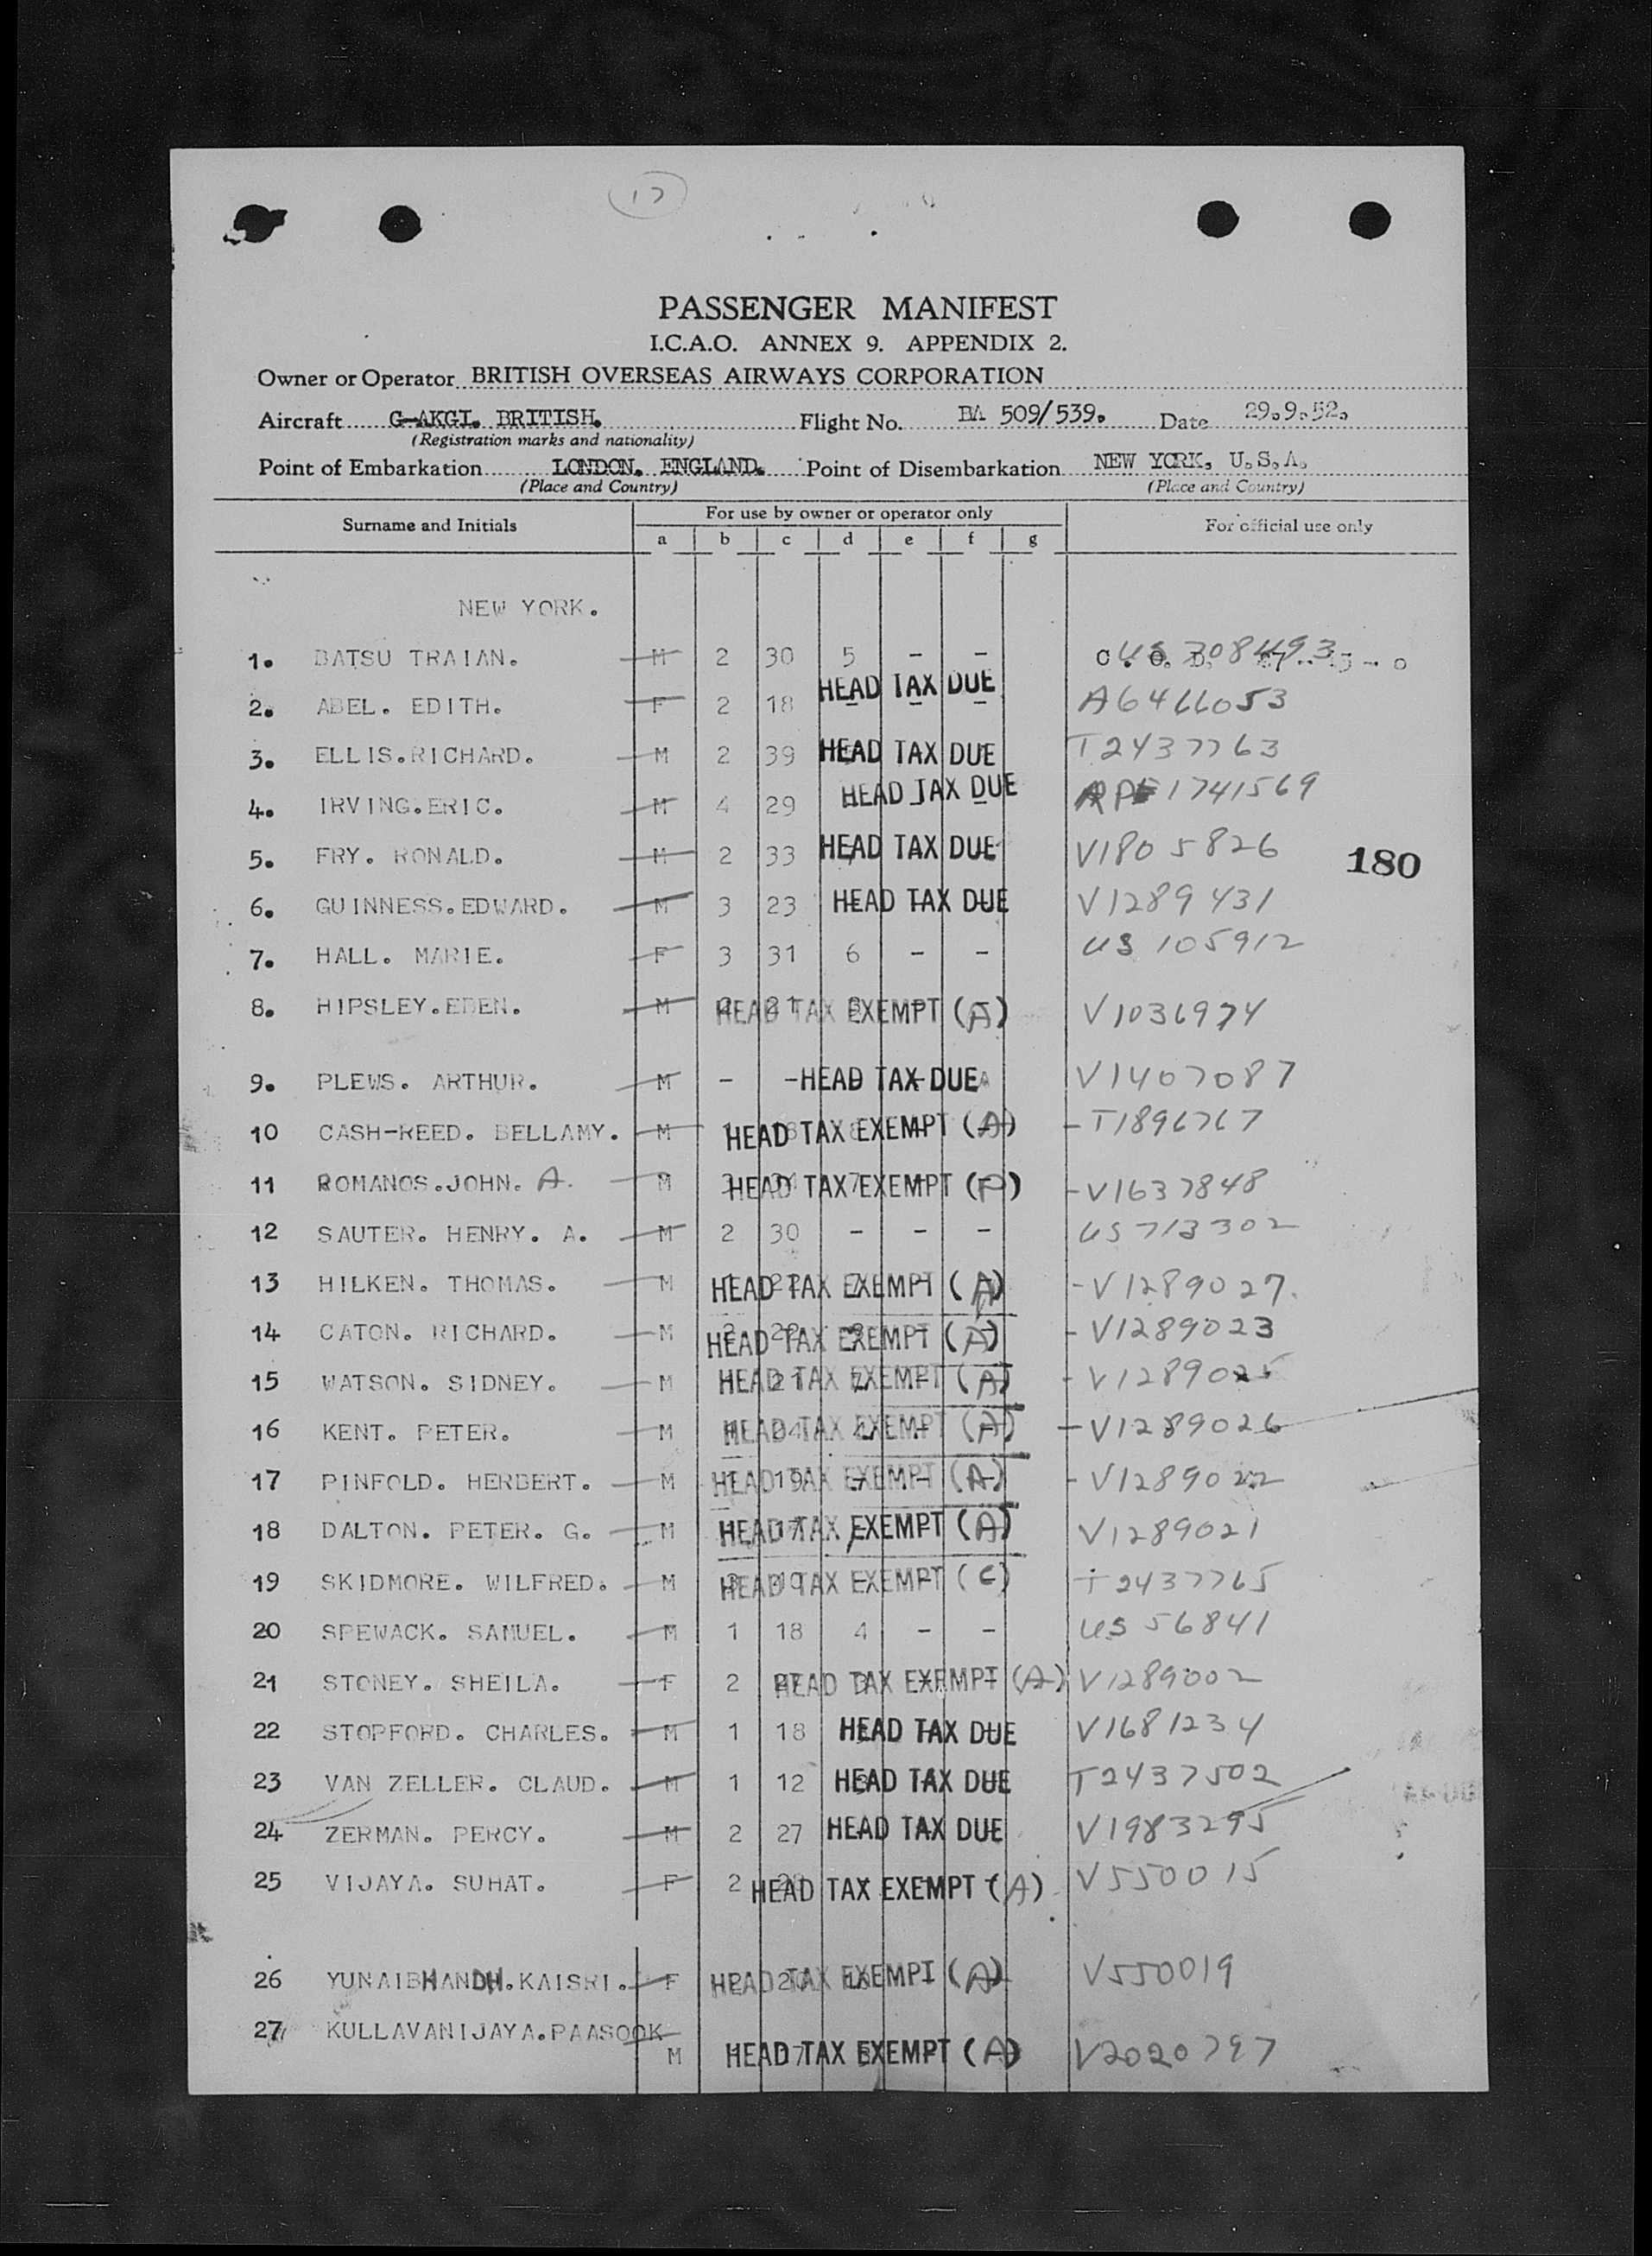 17
PASSENGER MANIFEST
I.C.A.O. ANNEX 9. APPENDIX 2.
Owner or Operator BRITISH OVERSEAS AIRWAYS CORPORATION
Aircraft G-AKGI. BRITISH. Flight No. BA 509/539. Date 29.9.52.
(Registration marks and nationality)
Point of Embarkation LONDON. ENGLAND. Point of Disembarkation NEW YORK, U.S.A.
(Place and Country) (Place and Country)
Surname and Initials For use by owner or operator only For official use only
a b c d e f g
NEW YORK.
1. BATSU TRAIAN. M 2 30 5 - - US 708493
2. ABEL. EDITH. F 2 18 HEAD TAX DUE A6466053
3. ELLIS.RICHARD. M 2 39 HEAD TAX DUE T2437763
4. IRVING.ERIC. M 4 29 HEAD TAX DUE 1741569
5. FRY. RONALD. M 2 33 HEAD TAX DUE V1805826
180
6. GUINNESS.EDWARD. M 3 23 HEAD TAX DUE V1289431
7. HALL. MARIE. F 3 31 6 - - US 105912
8. HIPSLEY.EDEN. M HEAD TAX EXEMPT (A) V1036974
9. PLEWS. ARTHUR. M - - HEAD TAX DUE V1407087
10 CASH-REED. BELLAMY. M HEAD TAX EXEMPT (A) - T1896767
11 ROMANOS.JOHN. A. M HEAD TAX EXEMPT (P) - V1637848
12 SAUTER. HENRY. A. M 2 30 - - - US 713302
13 HILKEN. THOMAS. M HEAD TAX EXEMPT (A) - V1289027.
14 CATON. RICHARD. M HEAD TAX EXEMPT (A) - V1289023
15 WATSON. SIDNEY. M HEAD TAX EXEMPT (A) - V1289025
16 KENT. PETER. M HEAD TAX EXEMPT (A) - V1289026
17 PINFOLD. HERBERT. M HEAD TAX EXEMPT (A) - V1289022
18 DALTON. PETER. G. M HEAD TAX EXEMPT (A) V1289021
19 SKIDMORE. WILFRED. M HEAD TAX EXEMPT (C) T2437765
20 SPEWACK. SAMUEL. M 1 18 4 - - US 56841
21 STONEY. SHEILA. F 2 HEAD TAX EXEMPT (A) V1289002
22 STOPFORD. CHARLES. M 1 18 HEAD TAX DUE V1681234
23 VAN ZELLER. CLAUD. M 1 12 HEAD TAX DUE T2437502
24 ZERMAN. PERCY. M 2 27 HEAD TAX DUE V1983295
25 VIJAYA. SUHAT. F 2 HEAD TAX EXEMPT (A) V550015
26 YUNAIBHANDH.KAISRI. F HEAD TAX EXEMPT (A) V550019
27 KULLAVANIJAYA.PAASOOK
M HEAD TAX EXEMPT (A) V2020797